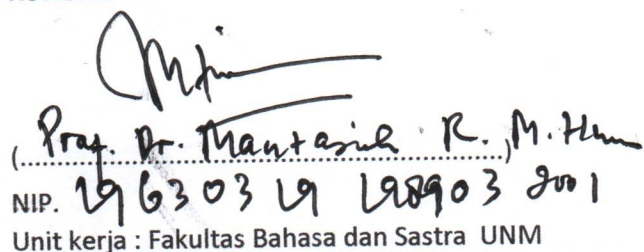 (Prof. Dr. Mantasiah R. M. Hum)
NIP. 19630319 198903 2001
Unit kerja : Fakultas Bahasa dan Sastra UNM